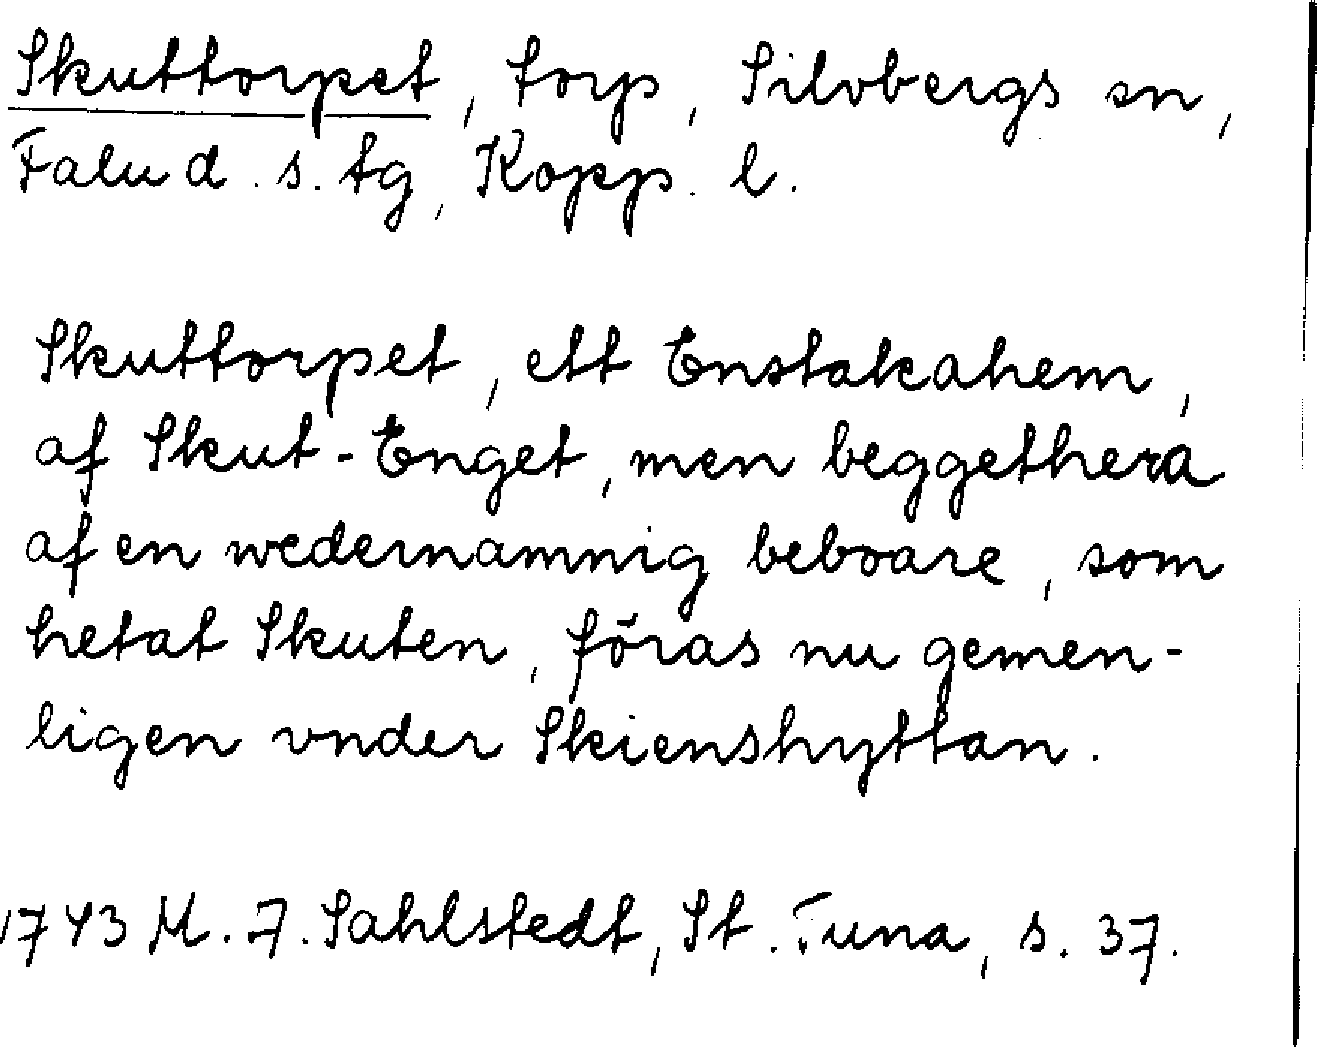 Skuttorpet, torp, Silvbergs sn,
Falu d. s. tg, Kopp. l.
Skuttorpet, ett Enstakahem,
af Skut-Enget, men beggethera
af en wedernamnig beboare, som
hetat Skuten, föras nu gemen-
ligen vnder Skienshyttan.
1743 M. J. Sahlstedt, St. Tuna, s. 37.